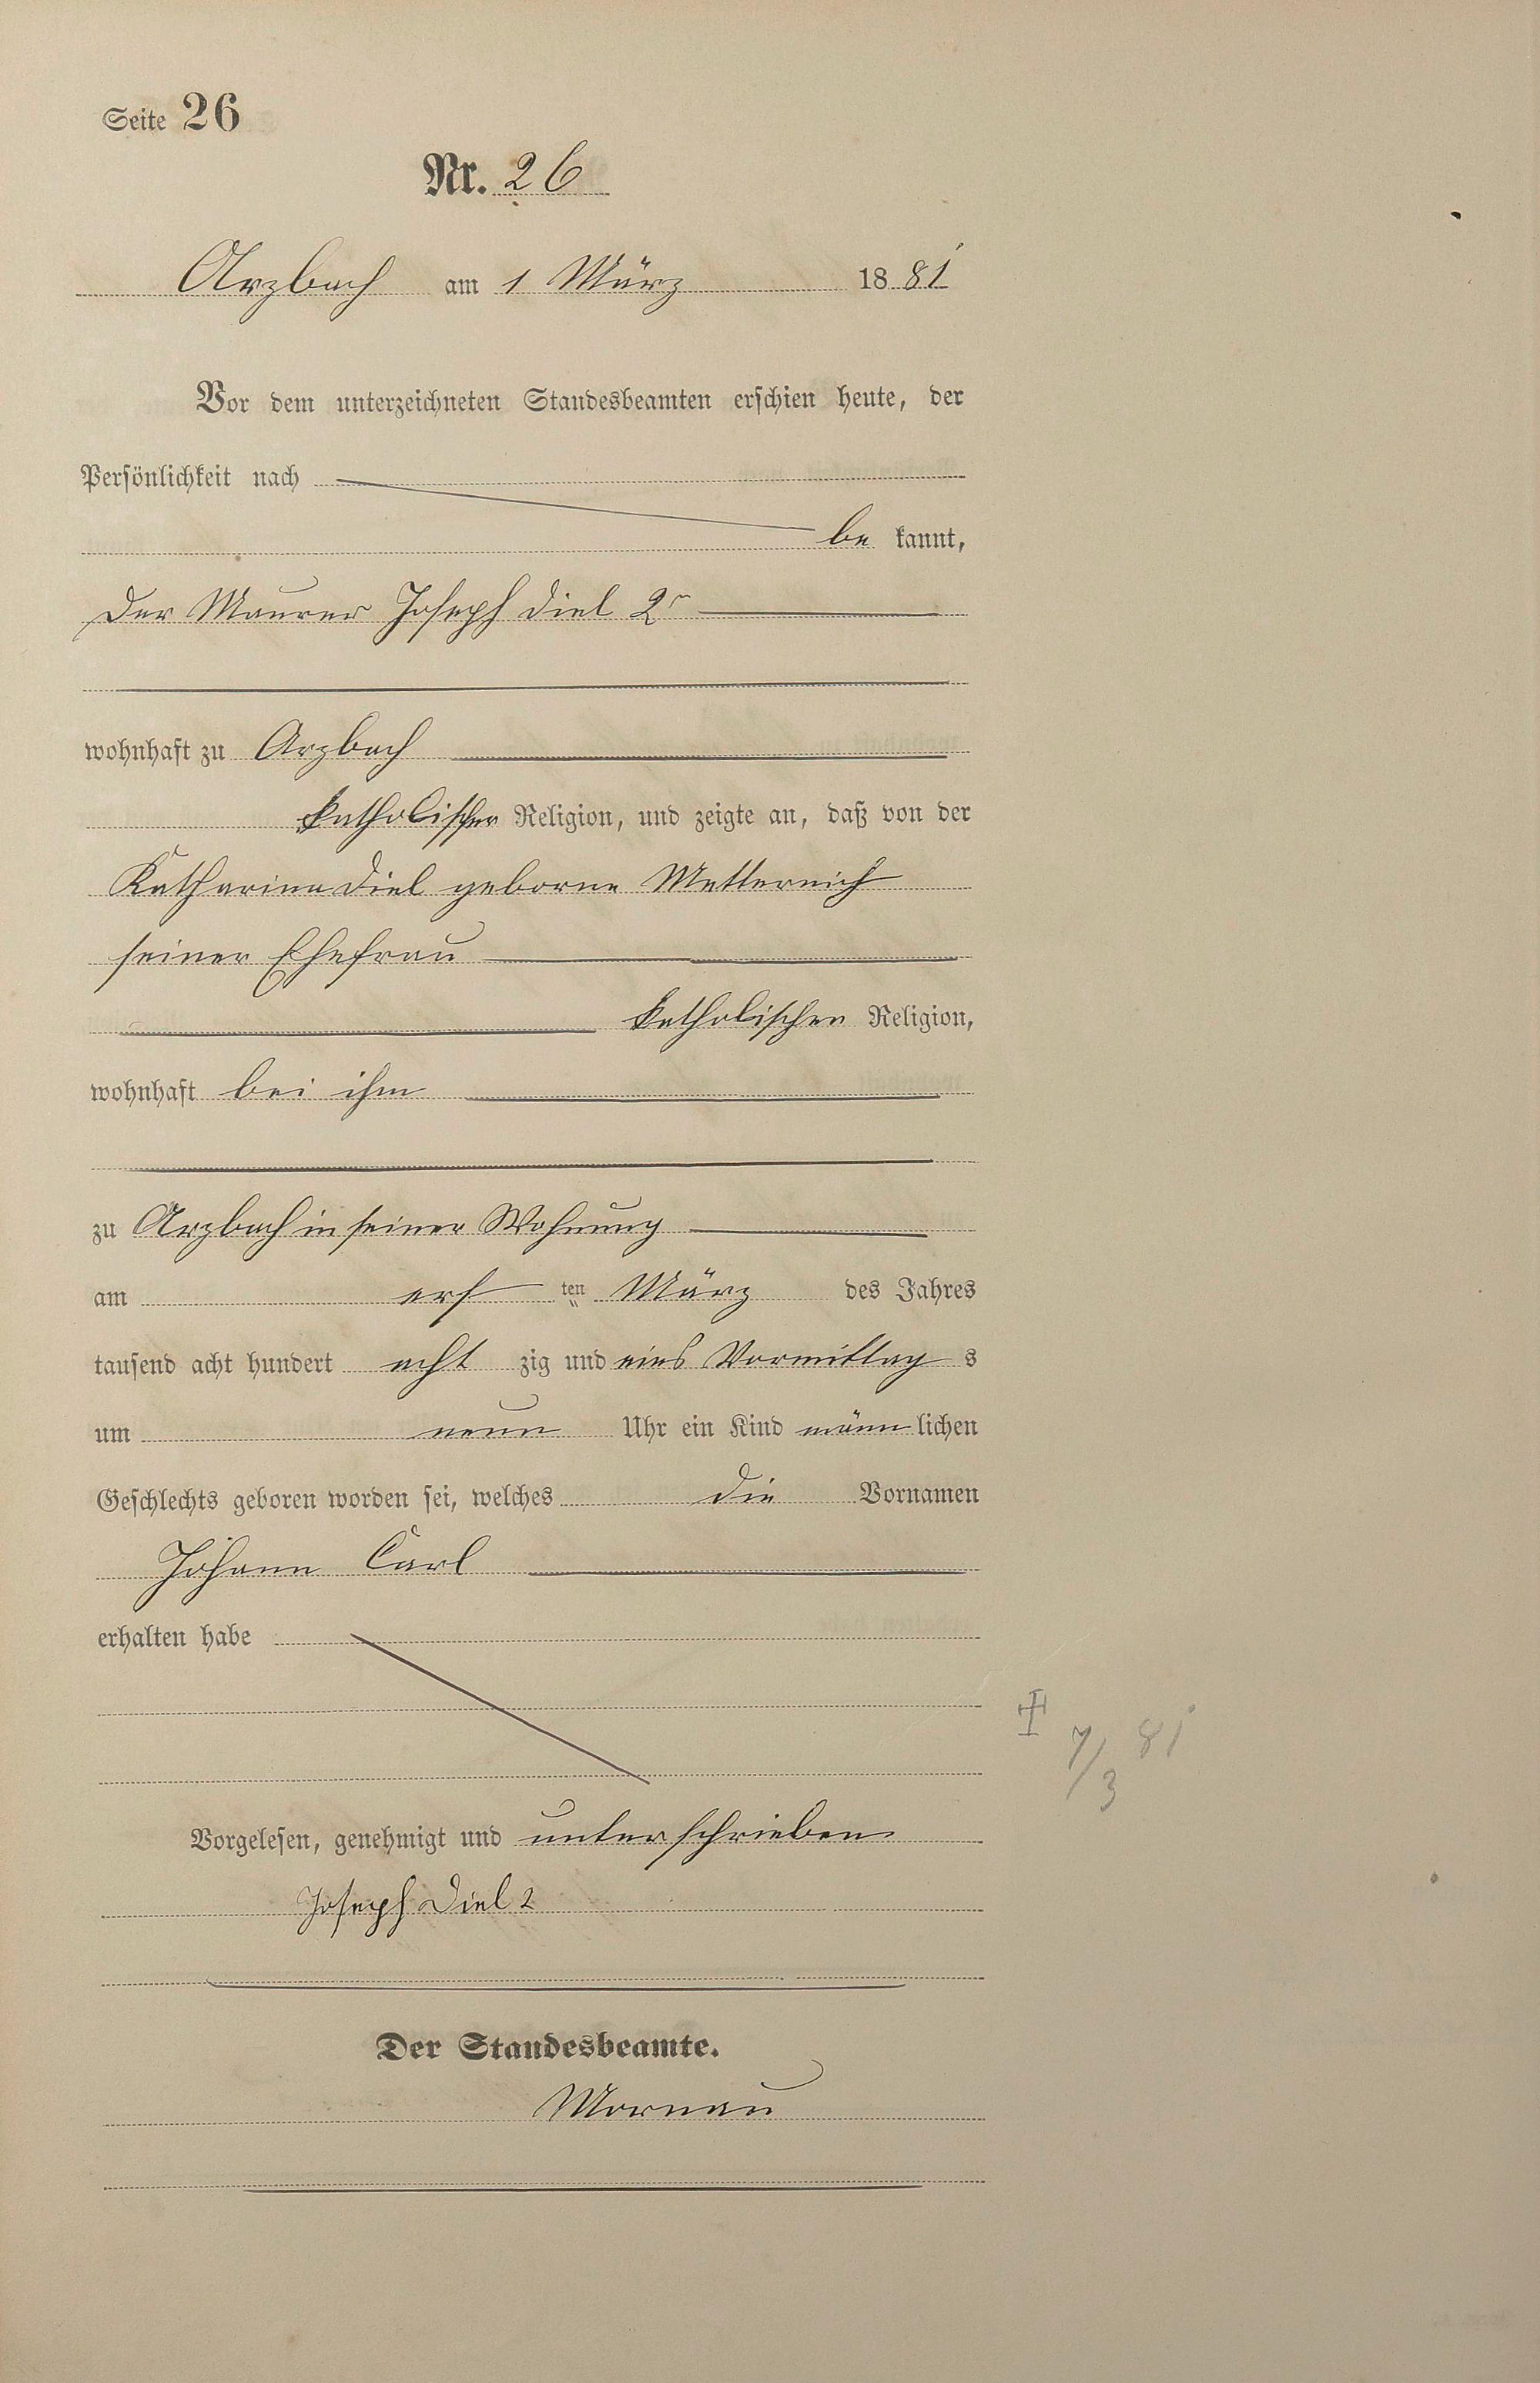 Seite 26
Nr. 26
Arzbach am 1 März 1881
Vor dem unterzeichneten Standesbeamten erschien heute, der
Persönlichkeit nach
be kannt,
der Maurer Joseph Diel 2r
wohnhaft zu Arzbach
katholischer Religion, und zeigte an, daß von der
Katharina Diel geborne Metternich
seiner Ehefrau
katholischer Religion,
wohnhaft bei ihm
zu Arzbach in seiner Wohnung
am ersten März des Jahres
tausend acht hundert acht zig und eins Vormittag s
um neun Uhr ein Kind männlichen
Geschlechts geboren worden sei, welches die Vornamen
Johann Carl
erhalten habe
† 7/3 81
Vorgelesen, genehmigt und unterschrieben
Joseph Diel 2
Der Standesbeamte.
Mornau